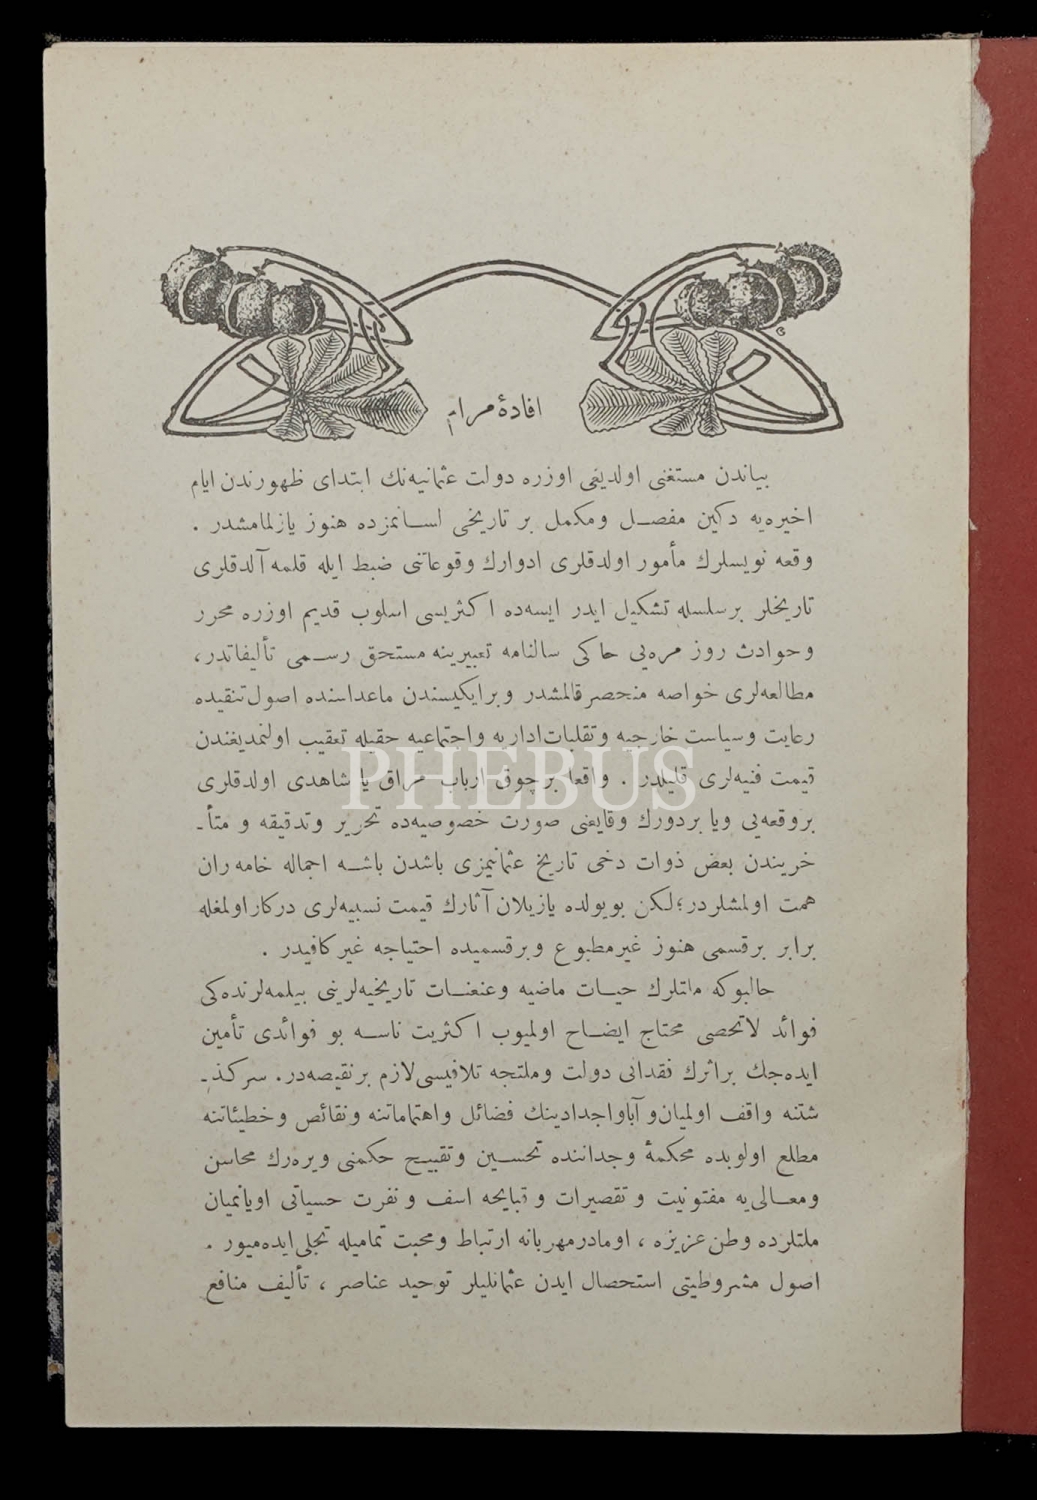 افادهٔ مرام
بیاندن مستغنی اولدیغی اوزره دولت عثمانیه‌نك ابتدای ظهورندن ایام
اخیره‌یه دكین مفصـل ومكمل بر تاریخی لسـانمزده هنوز یازلمامشدر .
وقعه نویسلرك مأمور اولدقلری ادوارك وقوعاتنی ضبط ایله قلمه آلدقلری
تاریخلر برسلسله تشكیل ایدر ایسه‌ده اكثریسی اسلوب قدیم اوزره محرر
وحوادث روز مره‌یی حاكی سالنامه تعبیرینه مستحق رسـمی تألیفاتدر،
مطالعه‌لری خواصه منحصر قالمشدر وبرایكیسندن ماعداسنده اصول تنقیده
رعایت وسیاست خارجیه وتقلبات اداریه واجتماعیه حقیله تعقیب اولنمدیغندن
قیمت فنیه‌لری قلیلدر . واقعا برچوق ارباب مراق یا شاهدی اولدقلری
بروقعه‌یی ویا بردورك وقایعنی صورت خصوصیه‌ده تحریر وتدقیقه و متأ-
خریندن بعض ذوات دخی تاریخ عثمانیمزی باشدن باشـه اجماله خامه ران
همت اولمشلردر؛ لكن بویولده یازیلان آثارك قیمت نسبیه‌لری دركار اولمغله
برابر برقسمی هنوز غیرمطبوع وبرقسمیده احتیاجه غیركافیدر .
حالبوكه ملتلرك حیـات ماضیه وعنعنـات تاریخیه‌لرینی بیلمه‌لرنده‌كی
فوائد لاتحصی محتاج ایضـاح اولمیوب اكثریت ناسـه بو فوائدی تأمین
ایده‌جك براثرك فقدانی دولت وملتجه تلافیسی لازم برنقیصه‌در. سركذ-
شتنه واقف اولمیان و آباواجدادینك فضائل واهتماماتنه ونقائص وخطیئاتنه
مطلع اولوبده محكمهٔ وجداننده تحسـین وتقبیـح حكمنی ویره‌رك محاسن
ومعـالی‌یه مفتونیت و تقصیرات و قبایحه اسف و نفرت حسیاتی اویانمیان
ملتلرده وطن عزیزه ، اومادرمهربانه ارتباط ومحبت تمامیله تجلی ایده‌میور .
اصول مشروطیتی استحصال ایدن عثمانلیلر توحید عناصر ، تألیف منافع
PHEBUS